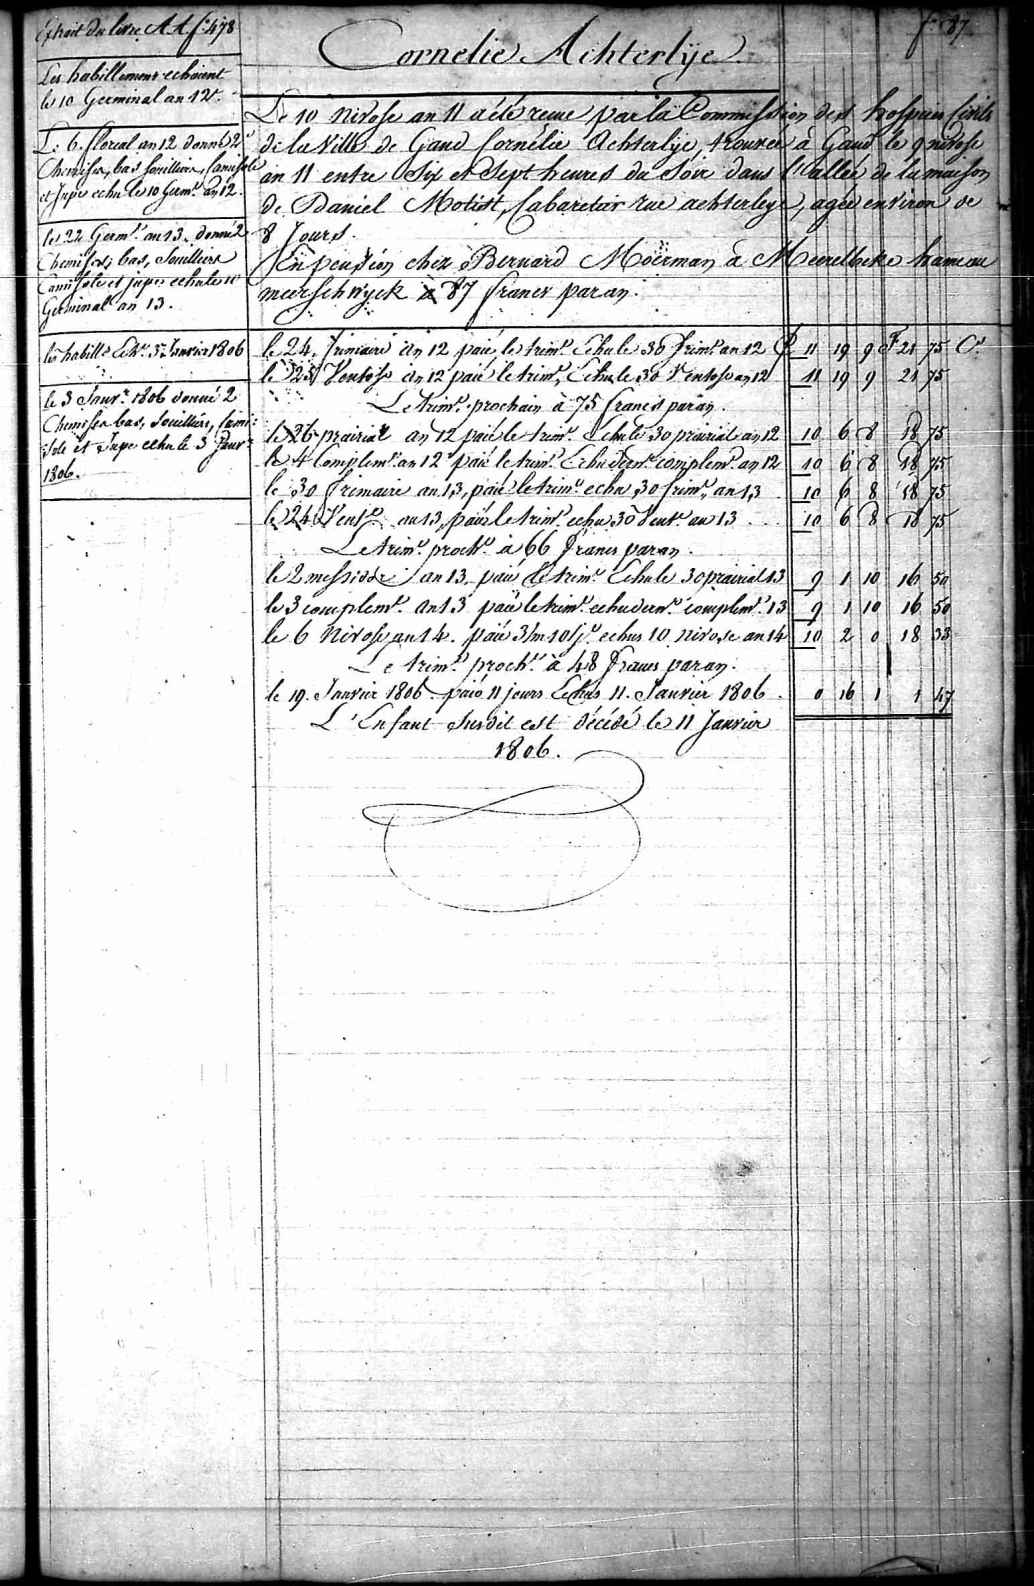 Extrait du livre AA f.º 478
f.º 87
Cornelie Achterlÿe.
Les habillemens echoient
le 10 Germinal an 12.
Le 6. floreal an 12 donné 2
Chemises, bas souilliers, Camisole
et Jupe echu le 10 Germ.l an 12.
le 22 Germ.l an 13. donné 2
Chemises, bas, Souilliers
Camisole et jupe echu le 10
Germinal an 13.
les habill.s Ech.t 3 Janvier 1806
le 3 Janv.r 1806 donné 2
Chemises bas, Souilliers, Cami-
sole et Jupe echu le 3 Janv.r
1806.
Le 10 Nivose an 11 a été recue par la Commission des hospices civils
de la Ville de Gand Cornélie Achterlÿe, trouvée à Gand le 9 nivose
an 11 entre Six et Sept heures du Soir dans l'allée de la maison
de Daniel Motist, Cabaretier rue achterlÿe, agée environ de
8 Jours.
En pension chez Bernard Moërman à Meirelbeke hameau
meerschwyck à 87 francs par an.
le 24. frimaire an 12 paié le trim.e Echu le 30 frim.e an 12 11 19 9 F 21 75 C.s
le 25 Ventose an 12 paié le trim.e Echu le 30 Ventose an 12 11 19 9 21 75
Le trim.e prochain à 75 francs par an.
le 26 prairial an 12 paié le trim.e Echu le 30 prairial an 12 10 6 8 18 75
le 4 Complem.e an 12 paié le trim.e Echu dern.r complem.e an 12 10 6 8 18 75
le 30 frimaire an 13, paié le trim.e echu 30 frim.e an 13 10 6 8 18 75
le 24 Vent.e an 13, paié le trim.e echu 30 Vent.e an 13 10 6 8 18 75
Le trim.e proch.n à 66 francs par an.
le 2 messidor an 13. paié le trim.e Echu le 30 prairial 13 9 1 10 16 50
le 3 complem.e an 13 paié le trim.e echu dern.r complem.e 13 9 1 10 16 50
le 6 Nivose an 14. paié 3/m 10/j.s echus 10 nivose an 14 10 2 0 18 33
Le trim.e proch.n à 48 francs par an.
le 19. Janvier 1806 paié 11 jours Echus 11. Janvier 1806. 0 16 1 1 47
L'Enfant Susdit est décédé le 11 Janvier
1806.